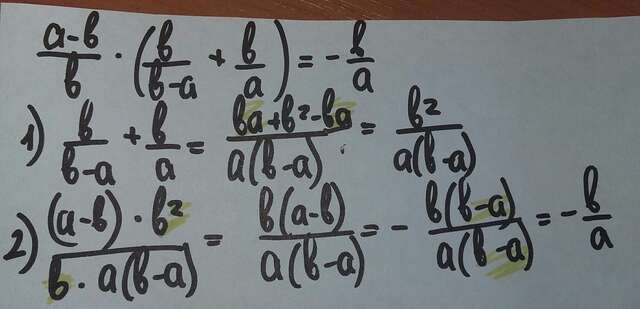 (a-b)/b · (b/(b-a) + b/a) = - b/a
1) b/(b-a) + b/a = (ba+b²-ba)/(a(b-a)) = b²/(a(b-a))
2) ((a-b) · b²)/(b · a(b-a)) = (b(a-b))/(a(b-a)) = - (b(b-a))/(a(b-a)) = - b/a